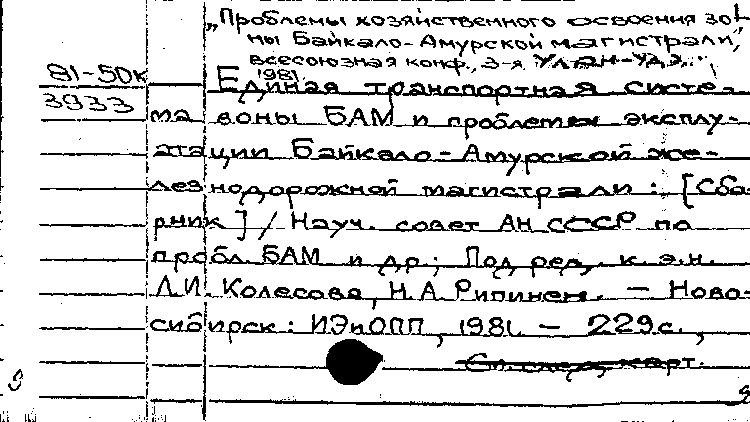 „Проблемы хозяйственного освоения зо-
ны Байкало-Амурской магистрали",
всесоюзная конф., 3-я. Улан-Удэ.
1981.
81-50к
3933
Единая транспортная систе-
ма зоны БАМ и проблемы эксплу-
атации Байкало-Амурской же-
лезнодорожной магистрали: [Сбо-
рник] / Науч. совет АН СССР по
пробл. БАМ и др.; Под ред. к.э.н.
Л.И. Колесова, Н.А. Рипинен. – Ново-
сибирск: ИЭиОПП, 1981. – 229с.,
См. след. карт.